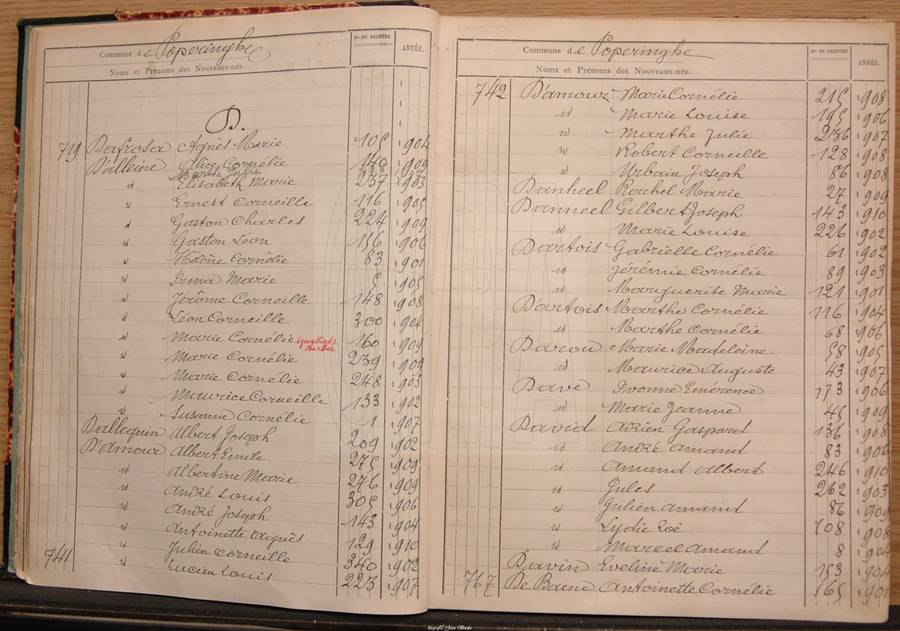 Commune de Poperinghe
Nos DU REGISTRE
ANNÉE.
Noms et Prénoms des Nouveaux-nés.
D.
719 Dafrosa Agnès Marie 105 1904
D'alleine Alice Cornélie 140 1909
Marthe Julie
id Elisabeth Marie 237 1903
id Ernest Corneille 116 1905
id Gaston Charles 224 1909
id Gaston Léon 156 1906
id Hélène Cornélie 83 1901
id Irma Marie 5 1905
id Jérôme Corneille 148 1908
id Léon Corneille 300 1904
id Marie Cornélie 160 1909
id Marie Cornélie 239 1909
id Marie Cornélie 248 1903
id Maurice Corneille 133 1902
id Susanne Cornélie 1 1907
Dallequin Albert Joseph 209 1902
D'Amour Albert Emile 275 1909
id Albertine Marie 276 1909
id André Louis 305 1906
id André Joseph 143 1904
id Antoinette Agnès 129 1910
id Julien Corneille 340 1902
741 id Lucien Louis 223 1907
Commune de Poperinghe
Nos DU REGISTRE
ANNÉE.
Noms et Prénoms des Nouveaux-nés.
742 D'amour Marie Cornélie 215 1908
id Marie Louise 195 1906
id Marthe Julie 236 1907
id Robert Corneille 128 1908
id Urbain Joseph 86 1908
Danheel Rachel Marie 27 1909
Danneel Gilbert Joseph 143 1910
id Marie Louise 226 1902
Dartois Gabrielle Cornélie 61 1902
id Jérémie Cornélie 89 1903
id Marguerite Marie 121 1901
Dartois Marthe Cornélie 116 1904
id Marthe Cornélie 68 1906
Daron Marie Madeleine 58 1905
id Maurice Auguste 43 1907
Dave Ivonne Emérence 173 1906
id Marie Jeanne 45 1909
David Adrien Gaspard 136 1908
id André Amand 83 1906
id Amand Albert 246 1910
id Jules 262 1903
id Julien Amand 86 1909
id Lydie Zoë 108 1908
id Marcel Amand 8 1904
Davin Eveline Marie 153 1904
767 De Baene Antoinette Cornélie 165 1901